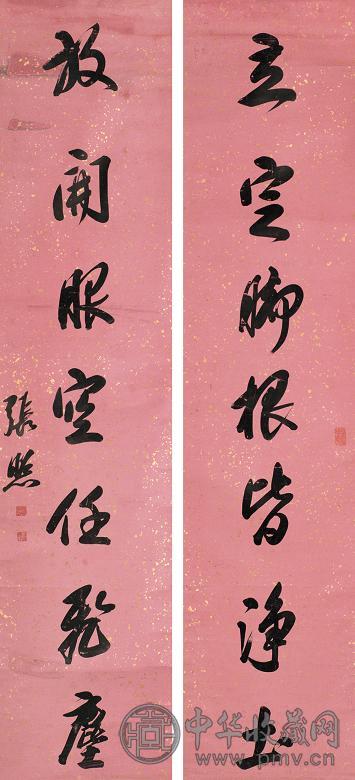 立定脚根皆淨土
放開眼空任飛塵
張照
中华收藏网
www.pmv.cn